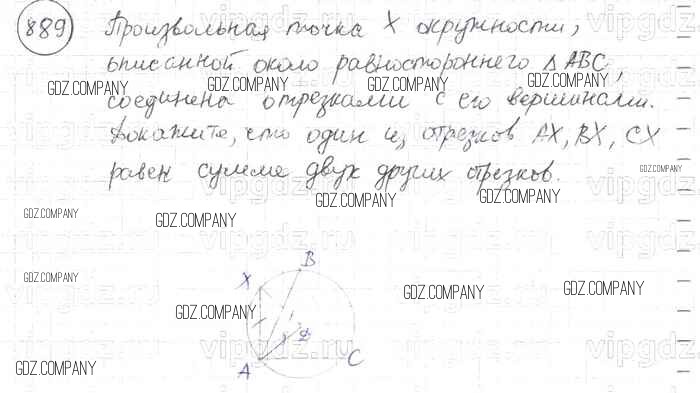 889 Произвольная точка X окружности,
описанной около равностороннего Δ ABC,
GDZ.COMPANY GDZ.COMPANY GDZ.COMPANY
соединена отрезками с его вершинами.
Докажите, что один из отрезков AX, BX, CX
равен сумме двух других отрезков.
GDZ.COMPANY
GDZ.COMPANY GDZ.COMPANY
GDZ.COMPANY GDZ.COMPANY
B
X
GDZ.COMPANY
GDZ.COMPANY GDZ.COMPANY
GDZ.COMPANY
D
vipgdz.ru
A C
GDZ.COMPANY